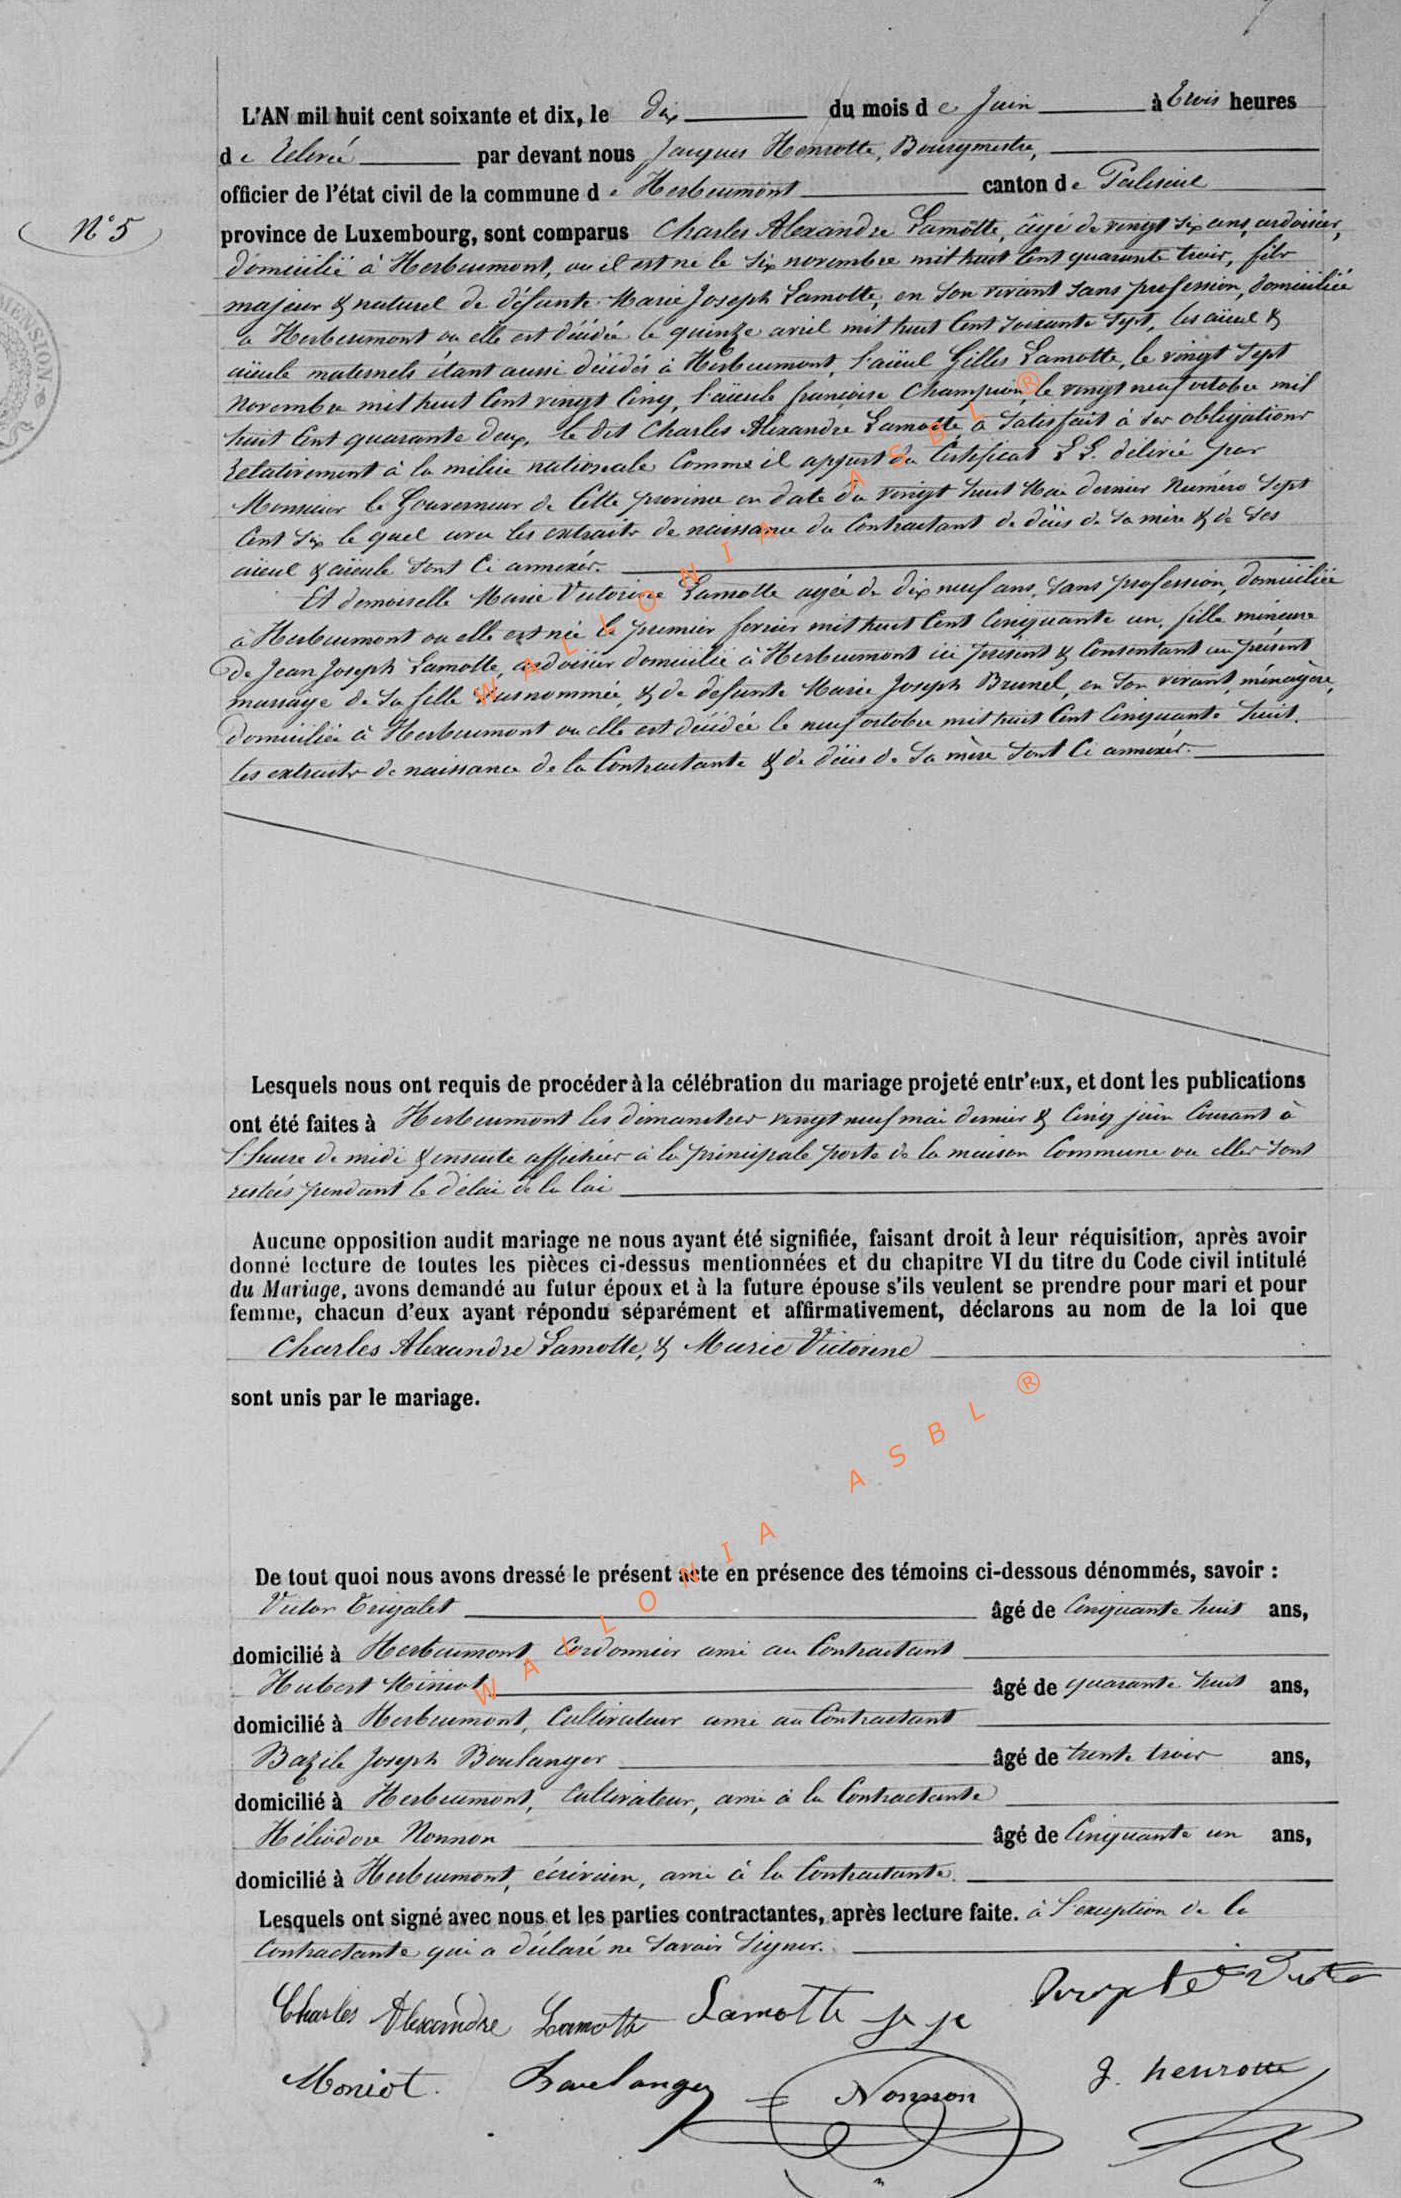 L'AN mil huit cent soixante et dix, le dix du mois d e Juin à trois heures
d e relevé par devant nous Jacques Henrotte, Bourgmestre,
officier de l'état civil de la commune d e Herbeumont canton d e Paliseul
N° 5
province de Luxembourg, sont comparus Charles Alexandre Lamotte, âgé de vingt six ans, ardoisier,
domicilié à Herbeumont, ou il est né le six novembre mil huit cent quarante trois, fils
majeur & naturel de défunte Marie Joseph Lamotte, en son vivant sans profession, domiciliée
à Herbeumont ou elle est décédée le quinze avril mil huit cent soixante sept, les aïeul &
aïeule maternels étant aussi décédés à Herbeumont, l'aïeul Gilles Lamotte, le vingt sept
novembre mil huit cent vingt cinq, l'aïeule françoise Champion, le vingt neuf octobre mil
huit cent quarante deux, le dit Charles Alexandre Lamotte a satisfait à ses obligations
relativement à la milice nationale comme il appert du certificat L L. délivré par
Monsieur le Gouverneur de cette province en date du vingt huit Mai dernier Numéro sept
cent six le quel avec les extraits de naissance du contractant de décès de sa mère & de ses
aïeul & aïeule sont ci annexés.
Et demoiselle Marie Victorine Lamotte agée de dix neuf ans, sans profession, domiciliée
à Herbeumont ou elle est née le premier fevrier mil huit cent cinquante un, fille mineure
de Jean Joseph Lamotte, ardoisier domicilié à Herbeumont ici présent & consentant au présent
mariage de sa fille susnommée, & de défunte Marie Joseph Brunel, en son vivant, ménagère,
domiciliée à Herbeumont ou elle est décédée le neuf octobre mil huit cent cinquante huit.
les extraits de naissance de la contractante & de décès de sa mère sont ci annexés.
Lesquels nous ont requis de procéder à la célébration du mariage projeté entr'eux, et dont les publications
ont été faites à Herbeumont les dimanches vingt neuf mai dernier & cinq juin courant à
l'heure de midi & ensuite affichées à la principale porte de la maison commune ou elles sont
restées pendant le délai de la loi
Aucune opposition audit mariage ne nous ayant été signifiée, faisant droit à leur réquisition, après avoir
donné lecture de toutes les pièces ci-dessus mentionnées et du chapitre VI du titre du Code civil intitulé
du Mariage, avons demandé au futur époux et à la future épouse s'ils veulent se prendre pour mari et pour
femme, chacun d'eux ayant répondu séparément et affirmativement, déclarons au nom de la loi que
Charles Alexandre Lamotte, & Marie Victorine
sont unis par le mariage.
De tout quoi nous avons dressé le présent acte en présence des témoins ci-dessous dénommés, savoir :
Victor âgé de cinquante huit ans,
domicilié à Herbeumont, cordonnier ami au contractant
Hubert âgé de quarante huit ans,
domicilié à Herbeumont, cultivateur ami au contractant
Bazile Joseph Boulanger âgé de trente trois ans,
domicilié à Herbeumont, cultivateur, ami à la contractante
Héliodore Nonnon âgé de cinquante un ans,
domicilié à Herbeumont, écrivain, ami à la contractante.
Lesquels ont signé avec nous et les parties contractantes, après lecture faite. à l'exception de la
contractante qui a déclaré ne savoir signer.
Charles Alexandre Lamotte Lamotte J J
Moniot. Boulanger Nonnon J. henrotte
WALLONIA ASBL ®
WALLONIA ASBL ®